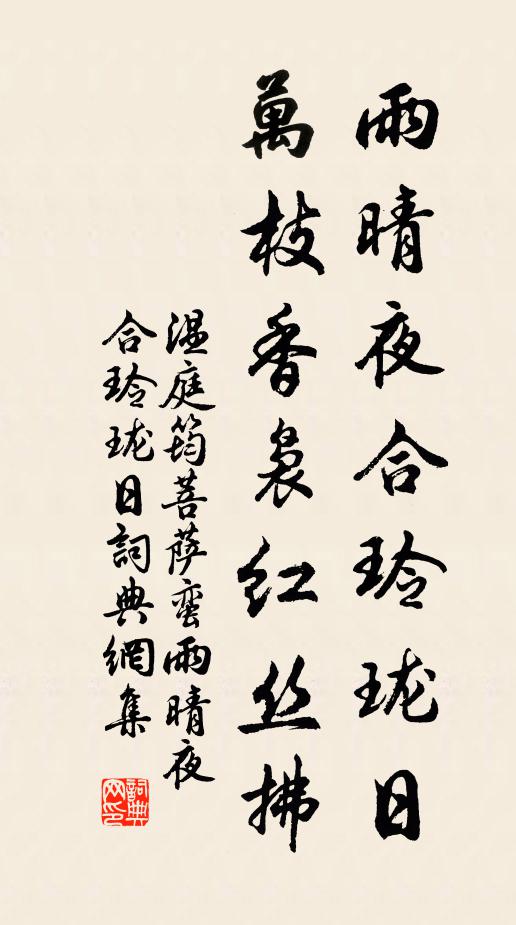 雨晴夜合玲瓏日
萬枝香裊紅丝拂
温庭筠菩薩蠻雨晴夜
合玲瓏日詞典網集
詞典
网印